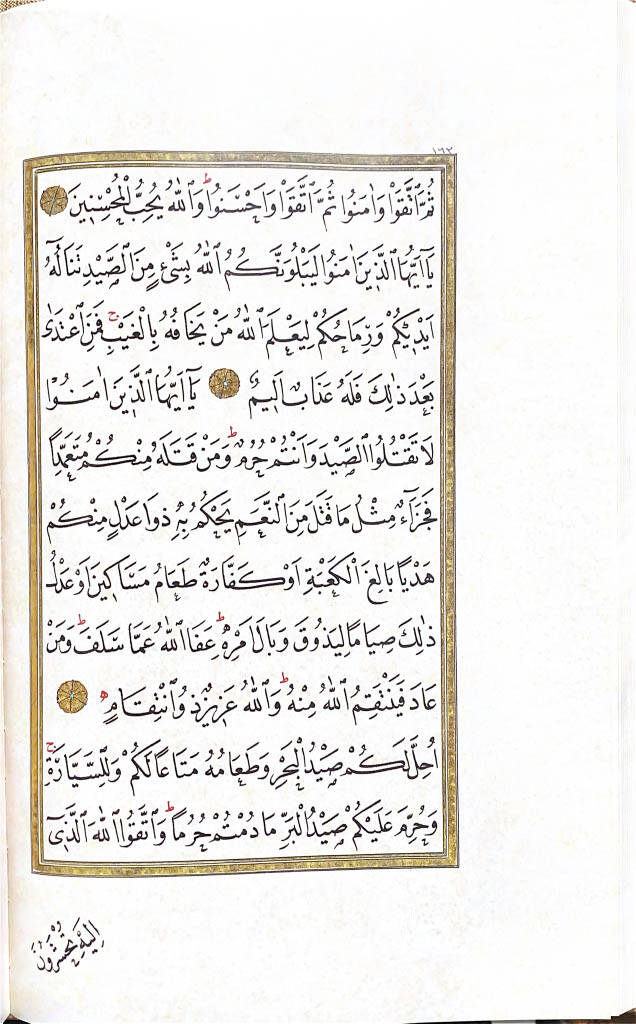 ١٦٢
ثُمَّ ٱتَّقَوْا وَاٰمَنُوا ثُمَّ ٱتَّقَوْا وَاَحْسَنُواۜ وَٱللّٰهُ يُحِبُّ ٱلْمُحْسِنٖينَ
يَٓا اَيُّهَا ٱلَّذٖينَ اٰمَنُوا لَيَبْلُوَنَّكُمُ ٱللّٰهُ بِشَىْءٍ مِنَ ٱلصَّيْدِ تَنَالُهُٓ
اَيْدٖيكُمْ وَرِمَاحُكُمْ لِيَعْلَمَ ٱللّٰهُ مَنْ يَخَافُهُ بِالْغَيْبِۚ فَمَنِ ٱعْتَدٰى
بَعْدَ ذٰلِكَ فَلَهُ عَذَابٌ اَلٖيمٌ يَٓا اَيُّهَا ٱلَّذٖينَ اٰمَنُوا
لَا تَقْتُلُوا ٱلصَّيْدَ وَاَنْتُمْ حُرُمٌۜ وَمَنْ قَتَلَهُ مِنْكُمْ مُتَعَمِّدًا
فَجَزَٓاءٌ مِثْلُ مَا قَتَلَ مِنَ ٱلنَّعَمِ يَحْكُمُ بِهٖ ذَوَا عَدْلٍ مِنْكُمْ
هَدْيًا بَالِغَ ٱلْكَعْبَةِ اَوْ كَفَّارَةٌ طَعَامُ مَسَاكٖينَ اَوْ عَدْلُ
ذٰلِكَ صِيَامًا لِيَذُوقَ وَبَالَ اَمْرِهٖۜ عَفَا ٱللّٰهُ عَمَّا سَلَفَۜ وَمَنْ
عَادَ فَيَنْتَقِمُ ٱللّٰهُ مِنْهُۜ وَٱللّٰهُ عَزٖيزٌ ذُو ٱنْتِقَامٍ
اُحِلَّ لَكُمْ صَيْدُ ٱلْبَحْرِ وَطَعَامُهُ مَتَاعًا لَكُمْ وَلِلسَّيَّارَةِۚ
وَحُرِّمَ عَلَيْكُمْ صَيْدُ ٱلْبَرِّ مَا دُمْتُمْ حُرُمًاۜ وَٱتَّقُوا ٱللّٰهَ ٱلَّذٖٓى
اِلَيْهِ تُحْشَرُونَ